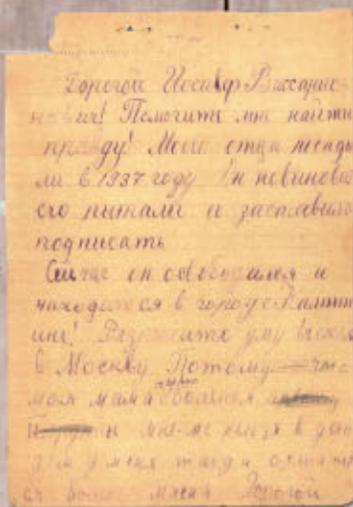 Дорогой Иосиф Виссарио-
нович! Помогите мне найти
правду! Моего отца посади
ли в 1937 году Он невиновен
его пытали и заставили
подписать
Сейчас он освободился и
находится в городе Калин
ине! Разрешите ему въезд
в Москву Потому что
моя мама больная
мне в дет
дом у меня тогда
Дорогой